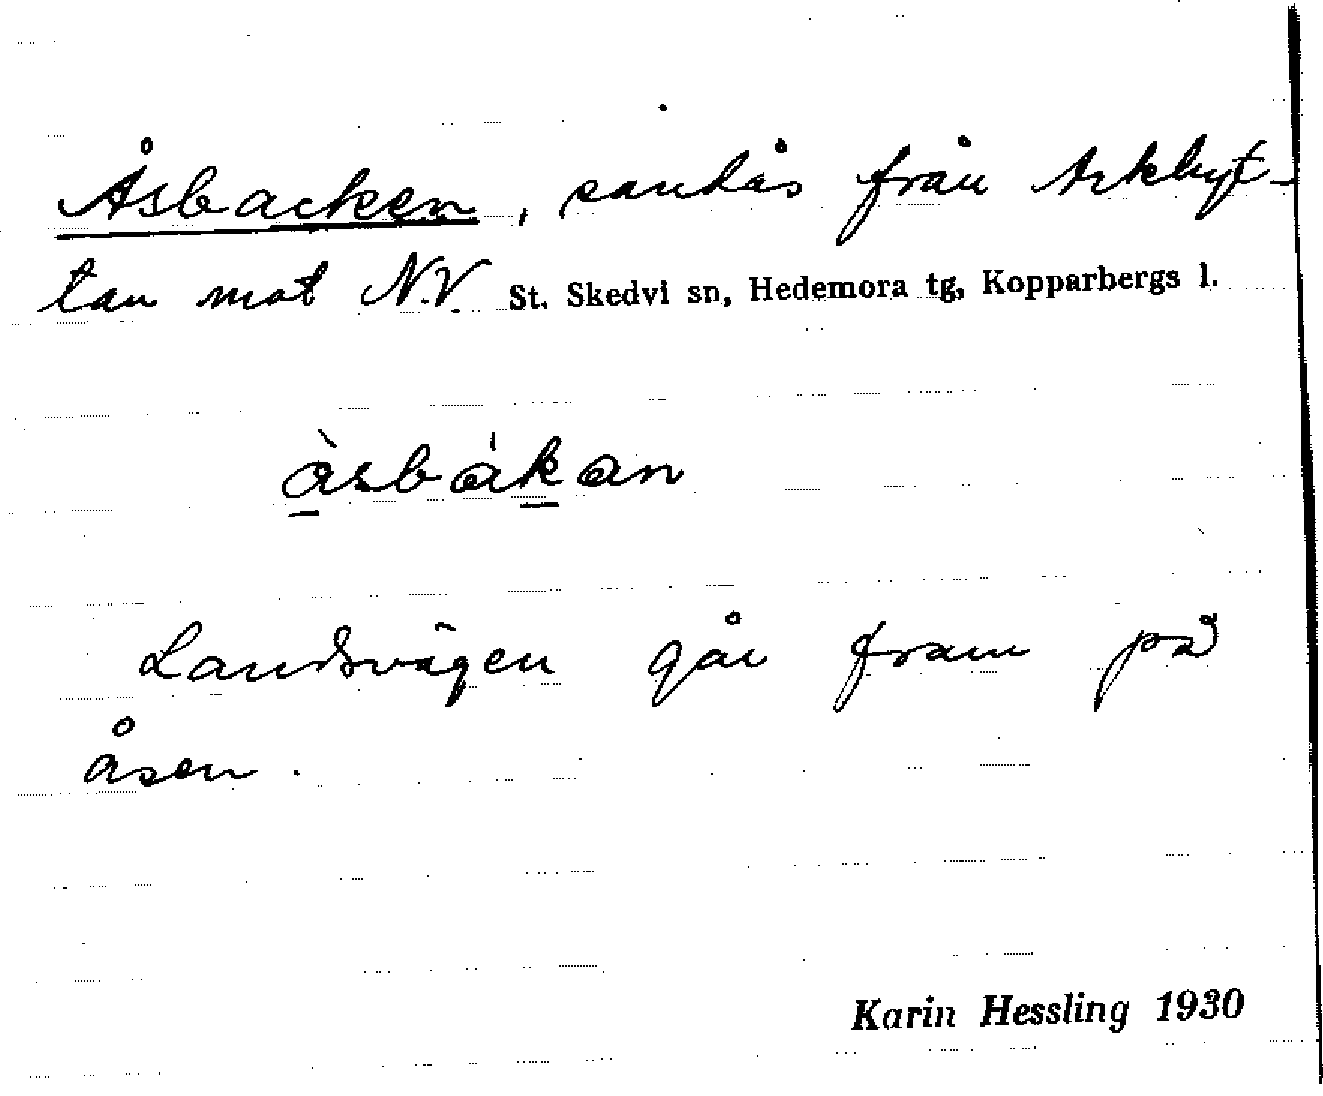 Åsbacken, sandås från Arkhyt-
tan mot N.V. St. Skedvi sn, Hedemora tg, Kopparbergs l.
àsbákan
Landsvägen går fram på
åsen.
Karin Hessling 1930